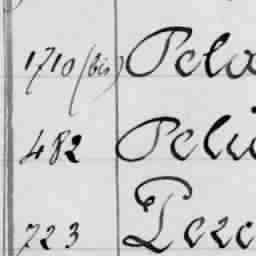 1710 (bis) Pela
482 Peli
723 Pere